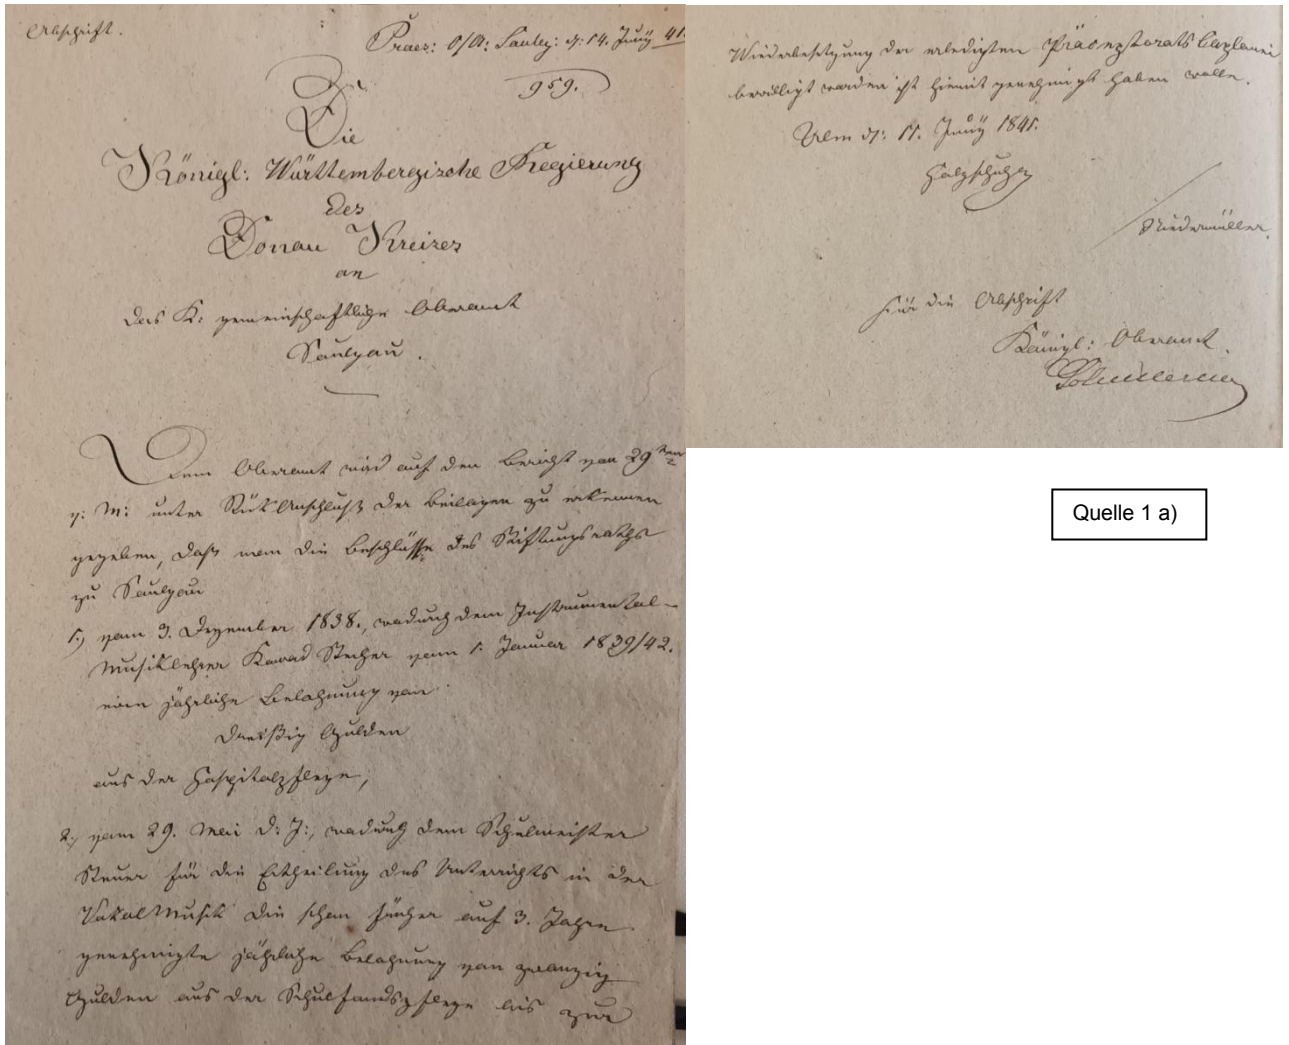 Abschrift.
Praes: O/A: Saulg: d: 14. Juny 41.
959.
Die
Königl: Württembergische Regierung
des
Donau Kreises
an
das K: gemeinschaftliche Oberamt
Saulgau.
Dem Oberamt wird auf den Bericht vom 29ten
v: M: unter RükAnschluß der Beilagen zu erkennen
gegeben, daß man die Beschlüsse des Stiftungsraths
zu Saulgau
1.) vom 3. Dezember 1838., wodurch dem Instrumental-
Musiklehrer Konrad Stecher vom 1. Januar 1839/42.
eine jährliche Belohnung von
dreißig Gulden
aus der Hospitalpflege,
2., vom 29. Mai d: J:, wodurch dem Schulmeister
Steuer für die Ertheilung des Unterrichts in der
VokalMusik die schon früher auf 3. Jahre
genehmigte jährliche Belohnung von zwanzig
Gulden aus der Schulfondspflege bis zur
Wiederbesetzung der erledigten Präzeptorats Caplanei
bewilligt worden ist hiemit genehmigt haben wolle.
Ulm d: 11. Juny 1841.
Holzschuher
Niedermüller.
Für die Abschrift
Königl: Oberamt.
Quelle 1 a)